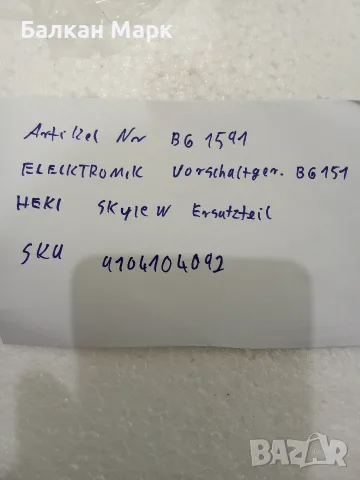 Балкан Марк
Artikel Nr BG 1591
ELEKTRONIK Vorschaltger. BG151
HEKI SKyle W Ersatzteil
SKU 9104104092
BAZAR